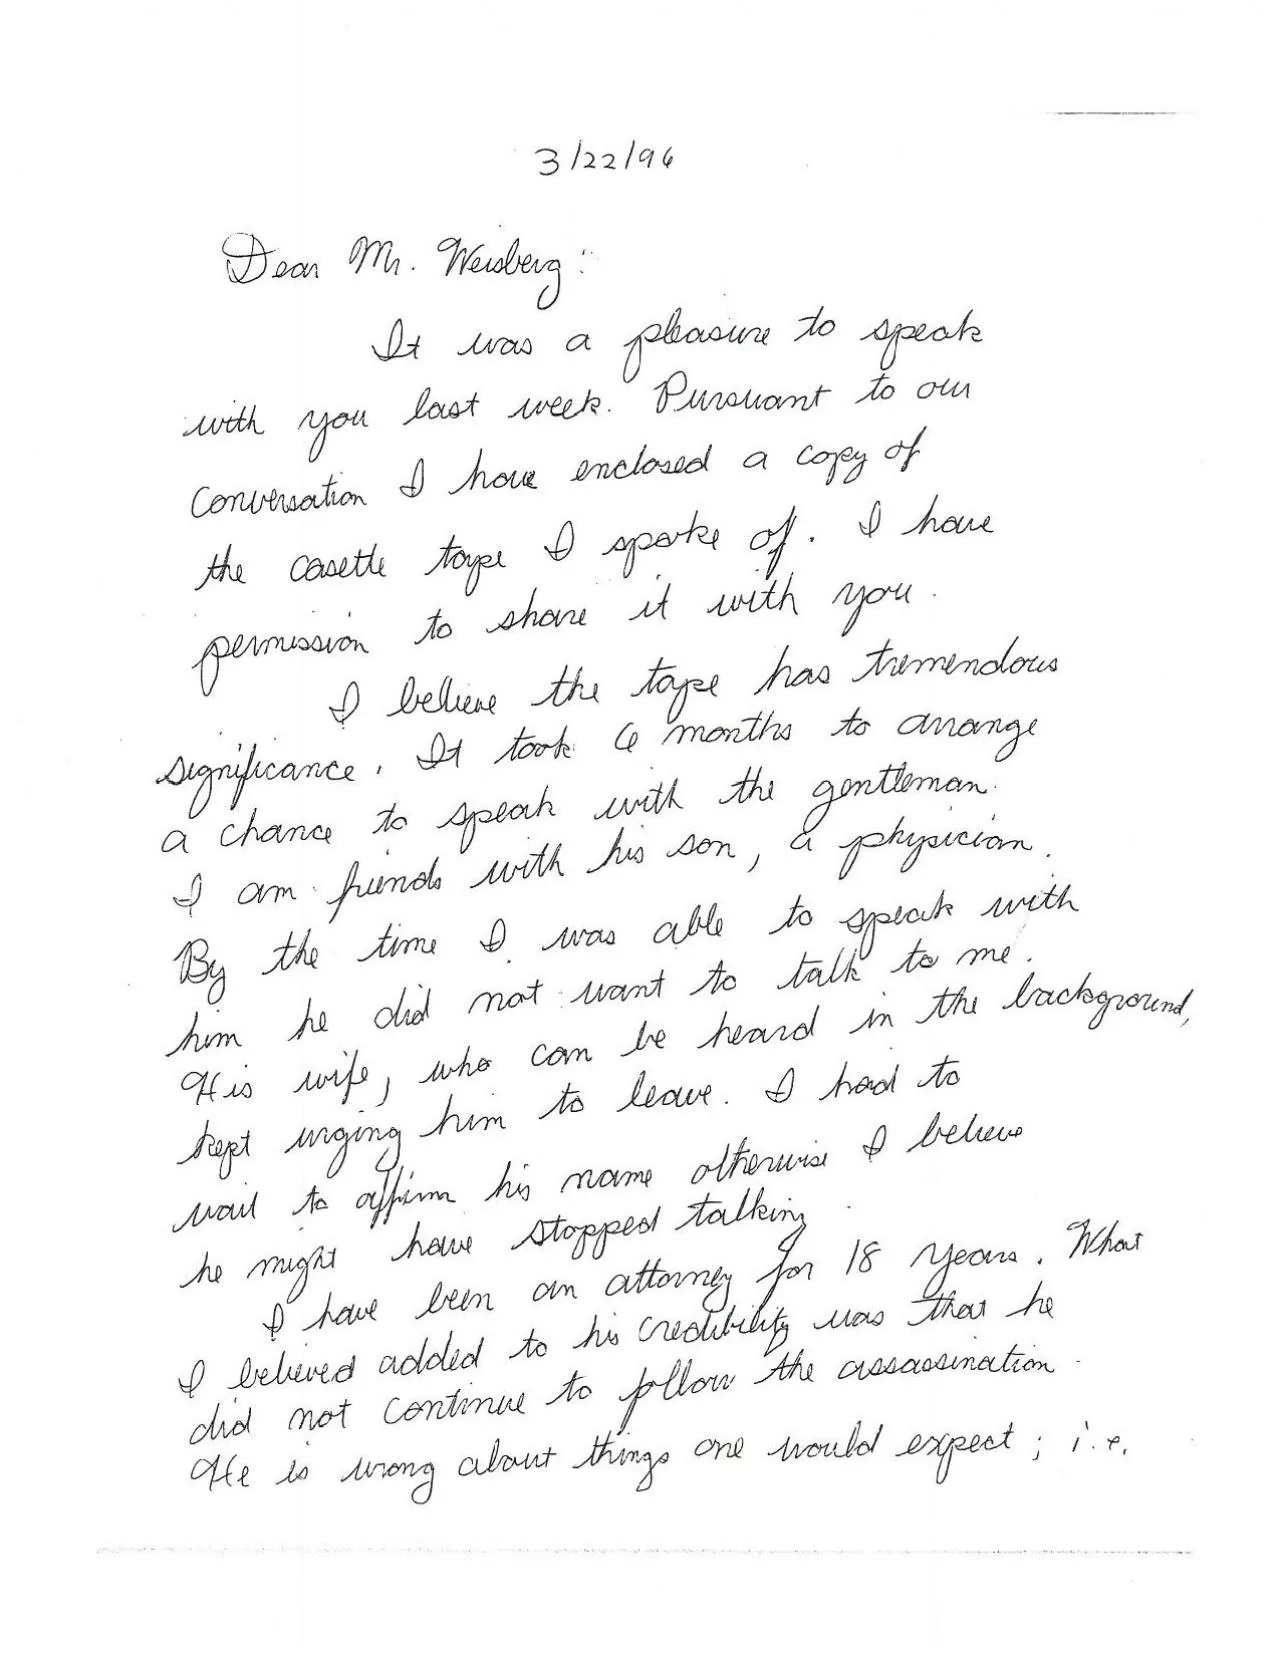 3/22/96
Dear Mr. Weisberg:
It was a pleasure to speak
with you last week. Pursuant to our
conversation I have enclosed a copy of
the casette tape I spoke of. I have
permission to share it with you.
I believe the tape has tremendous
significance. It took 6 months to arrange
a chance to speak with the gentleman.
I am friends with his son, a physician.
By the time I was able to speak with
him he did not want to talk to me.
His wife, who can be heard in the background,
kept urging him to leave. I had to
wait to affirm his name otherwise I believe
he might have stopped talking.
I have been an attorney for 18 years. What
I believed added to his credibility was that he
did not continue to follow the assassination.
He is wrong about things one would expect; i.e.